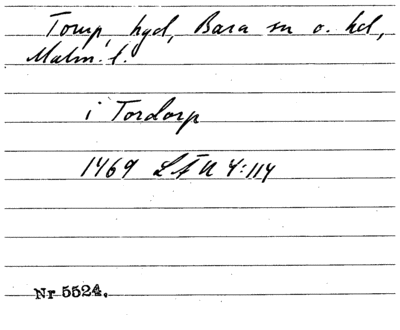 Torup, hgd, Bara sn o. hd,
Malm. l.
i Tordorp
1469 LÄU 4:114
Nr 5524.